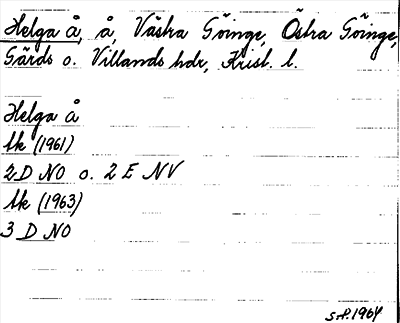 Helga å, å, Västra Göinge, Östra Göinge,
Gärds o. Villands hdr, Krist. l.
Helga å
Ek (1961)
2 D NO o. 2 E NV
Ek (1963)
3 D NO
S.P. 1964